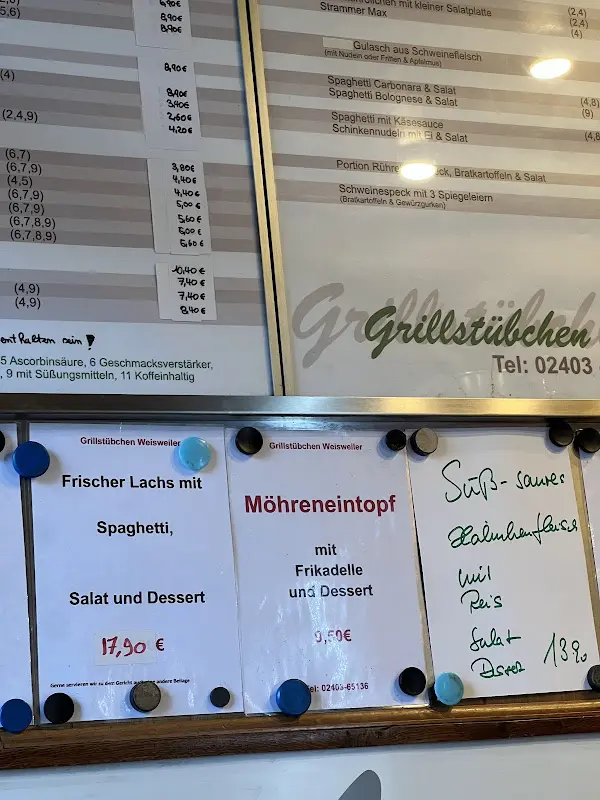 5,6)
6,90€
8,90€
8,90€
(4)
8,90€
8,90€
3,40€
(2,4,9)
2,60€
4,20€
(6,7)
(6,7,9)
(4,5)
(6,7,9)
(6,7,9)
(6,7,8,9)
(6,7,8,9)
3,80€
4,40€
4,40€
5,00€
5,60€
5,00€
5,60€
(4,9)
(4,9)
10,40€
7,40€
7,40€
8,40€
enthalten sein!
5 Ascorbinsäure, 6 Geschmacksverstärker,
, 9 mit Süßungsmitteln, 11 Koffeinhaltig
mit kleiner Salatplatte
(2,4)
Strammer Max
(2,4)
(4)
Gulasch aus Schweinefleisch
(mit Nudeln oder Fritten & Apfelmus)
Spaghetti Carbonara & Salat
(4,8)
Spaghetti Bolognese & Salat
(9)
Spaghetti mit Käsesauce
(4,8
Schinkennudeln mit Ei & Salat
Portion Rühre eck, Bratkartoffeln & Salat
Schweinespeck mit 3 Spiegeleiern
(Bratkartoffeln & Gewürzgurken)
Grillstübchen
Tel: 02403
Grillstübchen Weisweiler
Frischer Lachs mit
Spaghetti,
Salat und Dessert
17,90 €
Gerne servieren wir zu dem Gericht andere Beilage
Grillstübchen Weisweiler
Möhreneintopf
mit
Frikadelle
und Dessert
9,50€
Tel: 02403-65136
Süß-saures
Hähnchenfleisch
mit
Reis
Salat
Dsrt
13,90